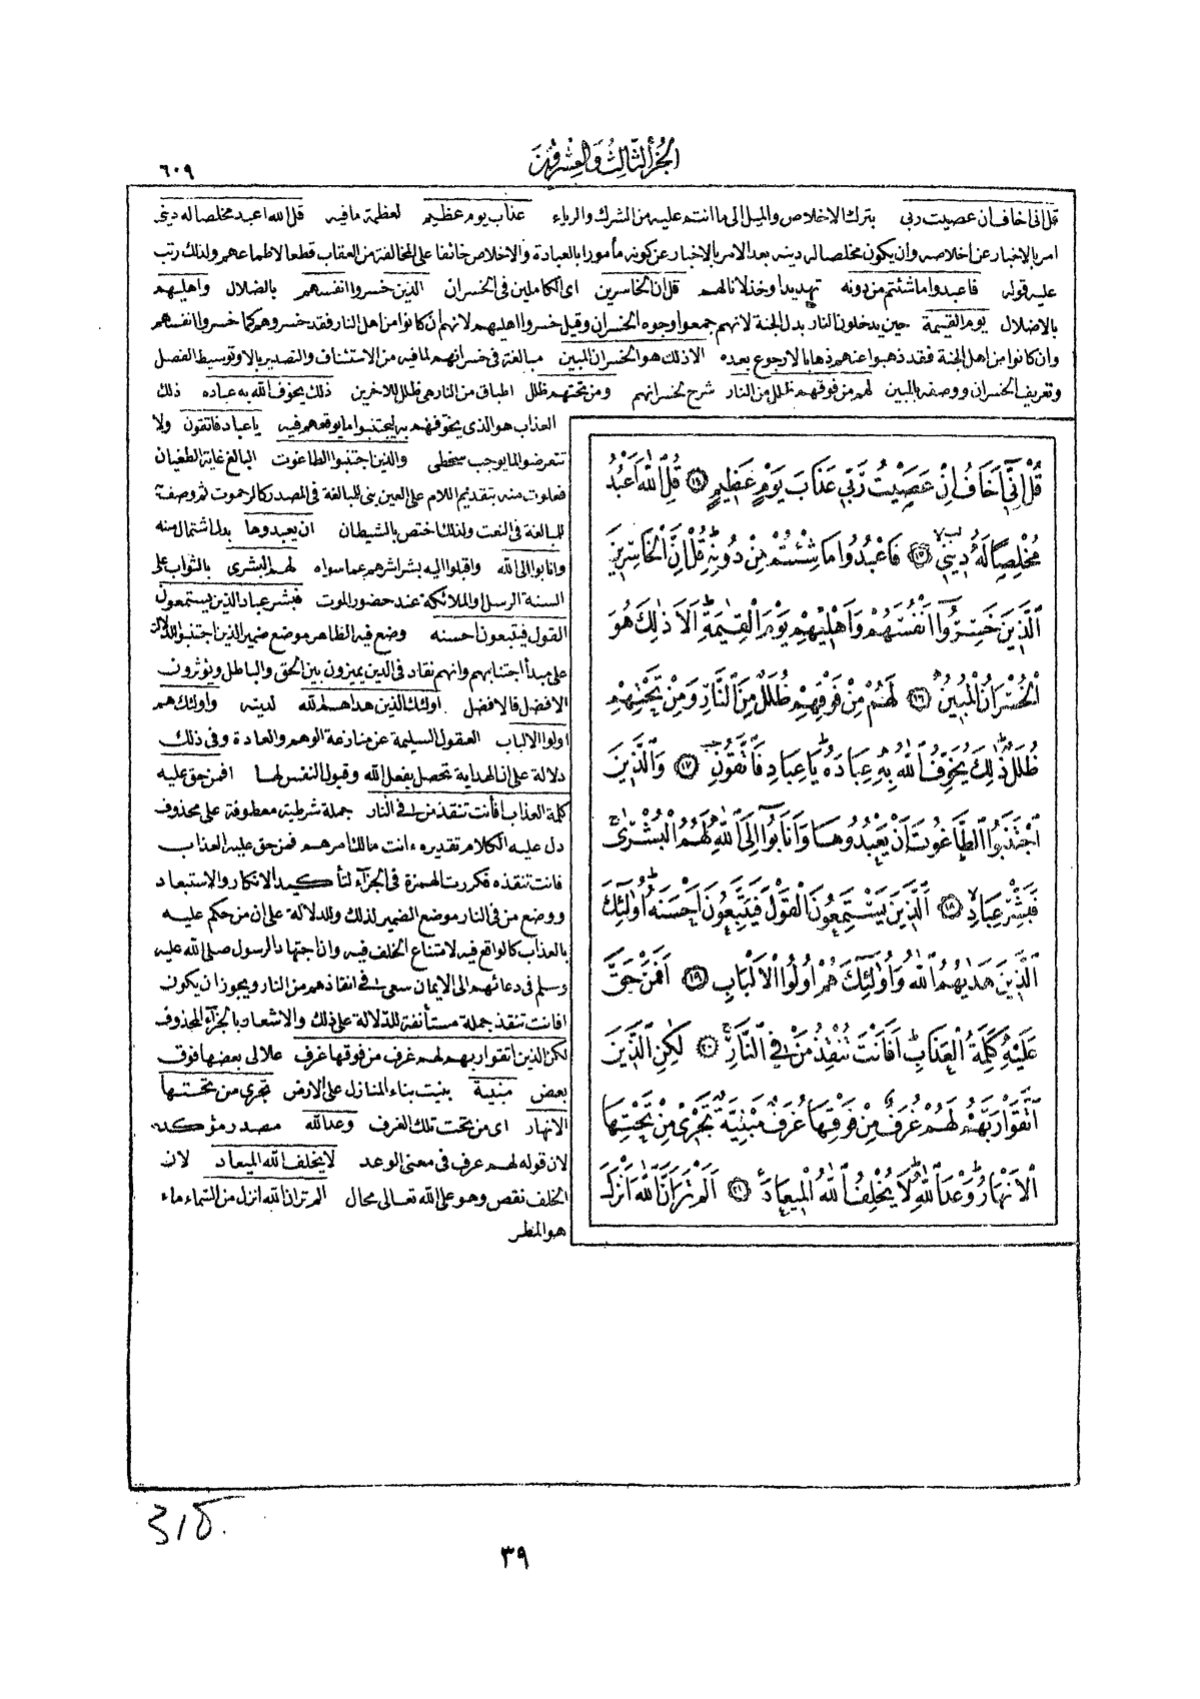 الجزء الثالث والعشرون
٦٠٩
قل انى اخاف ان عصيت ربى بترك الاخلاص والميل الى ما انتم عليه من الشرك والرياء عذاب يوم عظيم لعظمة ما فيه قل الله اعبد مخلصا له دينى
امر بالاخبار عن اخلاصه وان يكون مخلصا له دينه بعد الامر بالاخبار عن كونه مأمورا بالعبادة والاخلاص خائفا على المخالفة من العقاب قطعا لاطماعهم ولذلك رتب
عليه قوله فاعبدوا ما شئتم من دونه تهديدا وخذلانا لهم قل ان الخاسرين اى الكاملين فى الخسران الذين خسروا انفسهم بالضلال واهليهم
بالاضلال يوم القيمة حين يدخلون النار بدل الجنة لانهم جمعوا وجوه الخسران وقيل خسروا اهليهم لانهم ان كانوا من اهل النار فقد خسروهم كما خسروا انفسهم
وان كانوا من اهل الجنة فقد ذهبوا عنهم ذهابا لا رجوع بعده الا ذلك هو الخسران المبين مبالغة فى خسرانهم لما فيه من الاستئناف والتصدير بالا وتوسيط الفصل
وتعريف الخسران ووصفه بالمبين لهم من فوقهم ظلل من النار شرح لخسرانهم ومن تحتهم ظلل اطباق من النار هى ظلل للاخرين ذلك يخوف الله به عباده ذلك
العذاب هو الذى يخوفهم به ليجتنبوا ما يوقعهم فيه يا عباد فاتقون ولا
تتعرضوا لما يوجب سخطى والذين اجتنبوا الطاغوت البالغ غاية الطغيان
فعلوت منه بتقديم اللام على العين بنى للبالغة فى المصدر كالرحموت ثم وصف به
للبالغة فى النعت ولذلك اختص بالشيطان ان يعبدوها بدل اشتمال منه
وانابوا الى الله واقبلوا اليه بشراشرهم عما سواه لهم البشرى بالثواب على
السنة الرسل والملائكة عند حضور الموت فبشر عباد الذين يستمعون
القول فيتبعون احسنه وضع فيه الظاهر موضع ضمير الذين اجتنبوا للدلالة
على مبدأ اجتنابهم وانهم نقاد فى الدين يميزون بين الحق والباطل ويؤثرون
الافضل فالافضل اولئك الذين هداهم الله لدينه واولئك هم
اولوا الالباب العقول السليمة عن منازعة الوهم والعادة وفى ذلك
دلالة على ان الهداية تحصل بفعل الله وقبول النفس لها افمن حق عليه
كلمة العذاب افأنت تنقذ من فى النار جملة شرطية معطوفة على محذوف
دل عليه الكلام تقديره ءانت مالك امرهم فمن حق عليه العذاب
فانت تنقذه فكررت الهمزة فى الجزاء لتأكيد الانكار والاستبعاد
ووضع من فى النار موضع الضمير لذلك وللدلالة على ان من حكم عليه
بالعذاب كالواقع فيه لامتناع الخلف فيه وان اجتهاد الرسول صلى الله عليه
وسلم فى دعائهم الى الايمان سعى فى انقاذهم من النار ويجوز ان يكون
افانت تنقذ جملة مستأنفة للدلالة على ذلك والاشعار بالجزاء المحذوف
لكن الذين اتقوا ربهم لهم غرف من فوقها غرف علالى بعضها فوق
بعض مبنية بنيت بناء المنازل على الارض تجرى من تحتها
الانهار اى من تحت تلك الغرف وعد الله مصدر مؤكد
لان قوله لهم غرف فى معنى الوعد لا يخلف الله الميعاد لان
الخلف نقص وهو على الله تعالى محال الم تر ان الله انزل من السماء ماء
هو المطر
قُلْ اِنّٓى اَخَافُ اِنْ عَصَيْتُ رَبّٖى عَذَابَ يَوْمٍ عَظٖيمٍ ١٤ قُلِ اللّٰهَ اَعْبُدُ
مُخْلِصًا لَهُ دٖينٖى ١٥ فَاعْبُدُوا مَا شِئْتُمْ مِنْ دُونِهٖ قُلْ اِنَّ الْخَاسِرٖينَ
الَّذٖينَ خَسِرُٓوا اَنْفُسَهُمْ وَاَهْلٖيهِمْ يَوْمَ الْقِيٰمَةِ اَلَا ذٰلِكَ هُوَ
الْخُسْرَانُ الْمُبٖينُ ١٦ لَهُمْ مِنْ فَوْقِهِمْ ظُلَلٌ مِنَ النَّارِ وَمِنْ تَحْتِهِمْ
ظُلَلٌ ذٰلِكَ يُخَوِّفُ اللّٰهُ بِهٖ عِبَادَهُ يَا عِبَادِ فَاتَّقُونِ ١٧ وَالَّذٖينَ
اجْتَنَبُوا الطَّاغُوتَ اَنْ يَعْبُدُوهَا وَاَنَابُٓوا اِلَى اللّٰهِ لَهُمُ الْبُشْرٰى
فَبَشِّرْ عِبَادِ ١٨ اَلَّذٖينَ يَسْتَمِعُونَ الْقَوْلَ فَيَتَّبِعُونَ اَحْسَنَهُ اُولٰٓئِكَ
الَّذٖينَ هَدٰيهُمُ اللّٰهُ وَاُولٰٓئِكَ هُمْ اُولُوا الْاَلْبَابِ ١٩ اَفَمَنْ حَقَّ
عَلَيْهِ كَلِمَةُ الْعَذَابِ اَفَاَنْتَ تُنْقِذُ مَنْ فِى النَّارِ ٢٠ لٰكِنِ الَّذٖينَ
اتَّقَوْا رَبَّهُمْ لَهُمْ غُرَفٌ مِنْ فَوْقِهَا غُرَفٌ مَبْنِيَّةٌ تَجْرٖى مِنْ تَحْتِهَا
الْاَنْهَارُ وَعْدَ اللّٰهِ لَا يُخْلِفُ اللّٰهُ الْمٖيعَادَ ٢١ اَلَمْ تَرَ اَنَّ اللّٰهَ اَنْزَلَ
٣٩